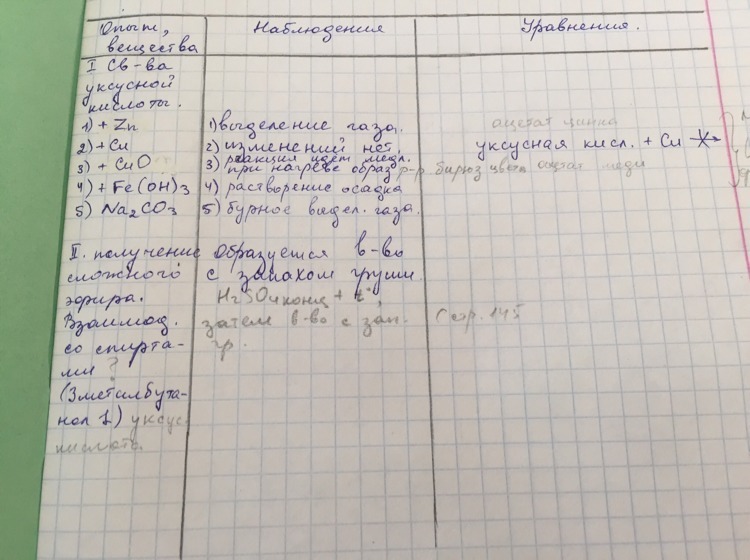 Опыт, вещества
Наблюдения
Уравнения.
I Св-ва
уксусной
кислоты.
1) + Zn
1) выделение газа.
ацетат цинка
2) + Cu
2) изменений нет.
уксусная кисл. + Cu
3) + CuO
3) реакция идёт медл.
при нагреве образ р-р бирюз цвета ацетат меди
4) + Fe(OH)3
4) растворение осадка
5) Na2CO3
5) бурное выдел. газа.
II. получение
сложного
эфира.
Взаимод.
со спирта-
ми ?
(3метилбута-
нол 1) уксус.
кислота.
Образуется в-во
с запахом груши
H2SO4конц + t°,
затем в-во с зап.
гр.
Стр. 145